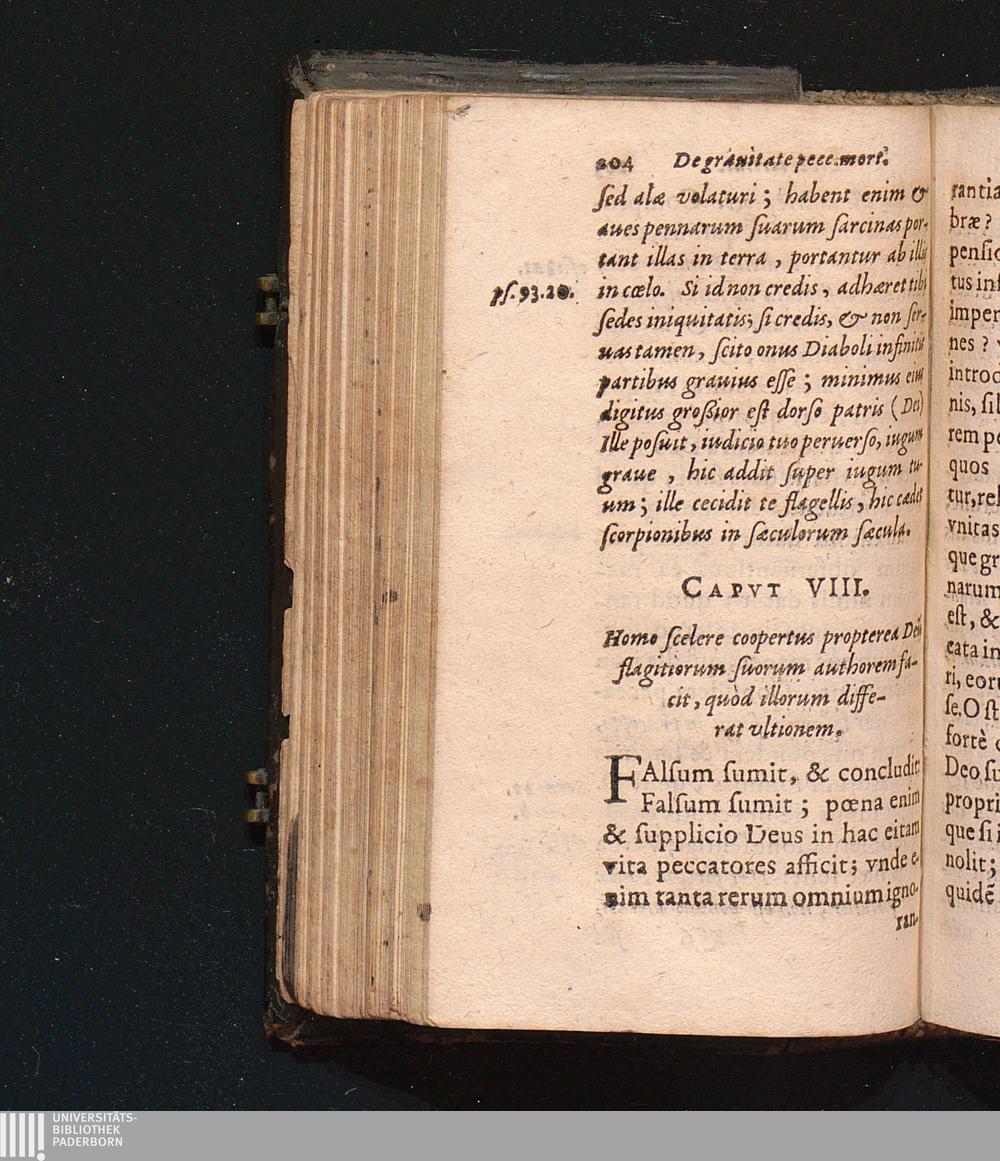 204 De grauitate pecc. mort.
sed alæ volaturi; habent enim &
aues pennarum suarum sarcinas por-
tant illas in terra, portantur ab illis
ps. 93. 20.
in cœlo. Si id non credis, adhæret tibi
sedes iniquitatis; si credis, & non ser-
uas tamen, scito onus Diaboli infinitis
partibus grauius esse; minimus eius
digitus grossior est dorso patris (Dei)
Ille posuit, iudicio tuo peruerso, iugum
graue, hic addit super iugum tu-
um; ille cecidit te flagellis, hic cædet
scorpionibus in sæculorum sæcula.
CAPVT VIII.
Homo scelere coopertus propterea Deũ
flagitiorum suorum authorem fa-
cit, quòd illorum diffe-
rat vltionem.
FAlsum sumit, & concludit
Falsum sumit; pœna enim
& supplicio Deus in hac eitam
vita peccatores afficit; vnde e-
nim tanta rerum omnium igno-
ran-
rantia
bræ?
pensio
tus inf
imper
nes?
introd
nis, sil
rem pe
quos
tur, rel
vnitas
que gr
narum
est, &
cata in
ri, eoru
se. O st
fortè
Deo, su
propri
que si i
nolit;
quidẽ
UNIVERSITÄTS-
BIBLIOTHEK
PADERBORN